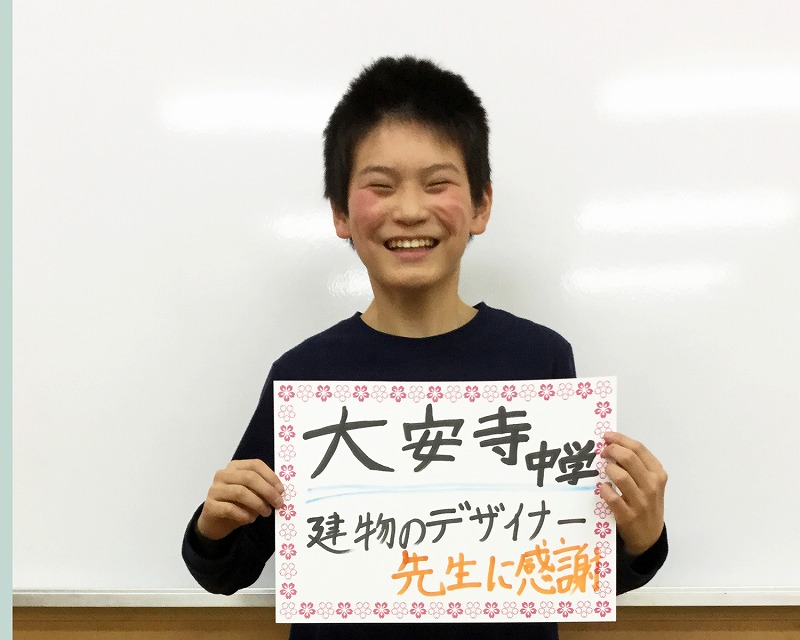 大安寺中学
建物のデザイナー
先生に感謝